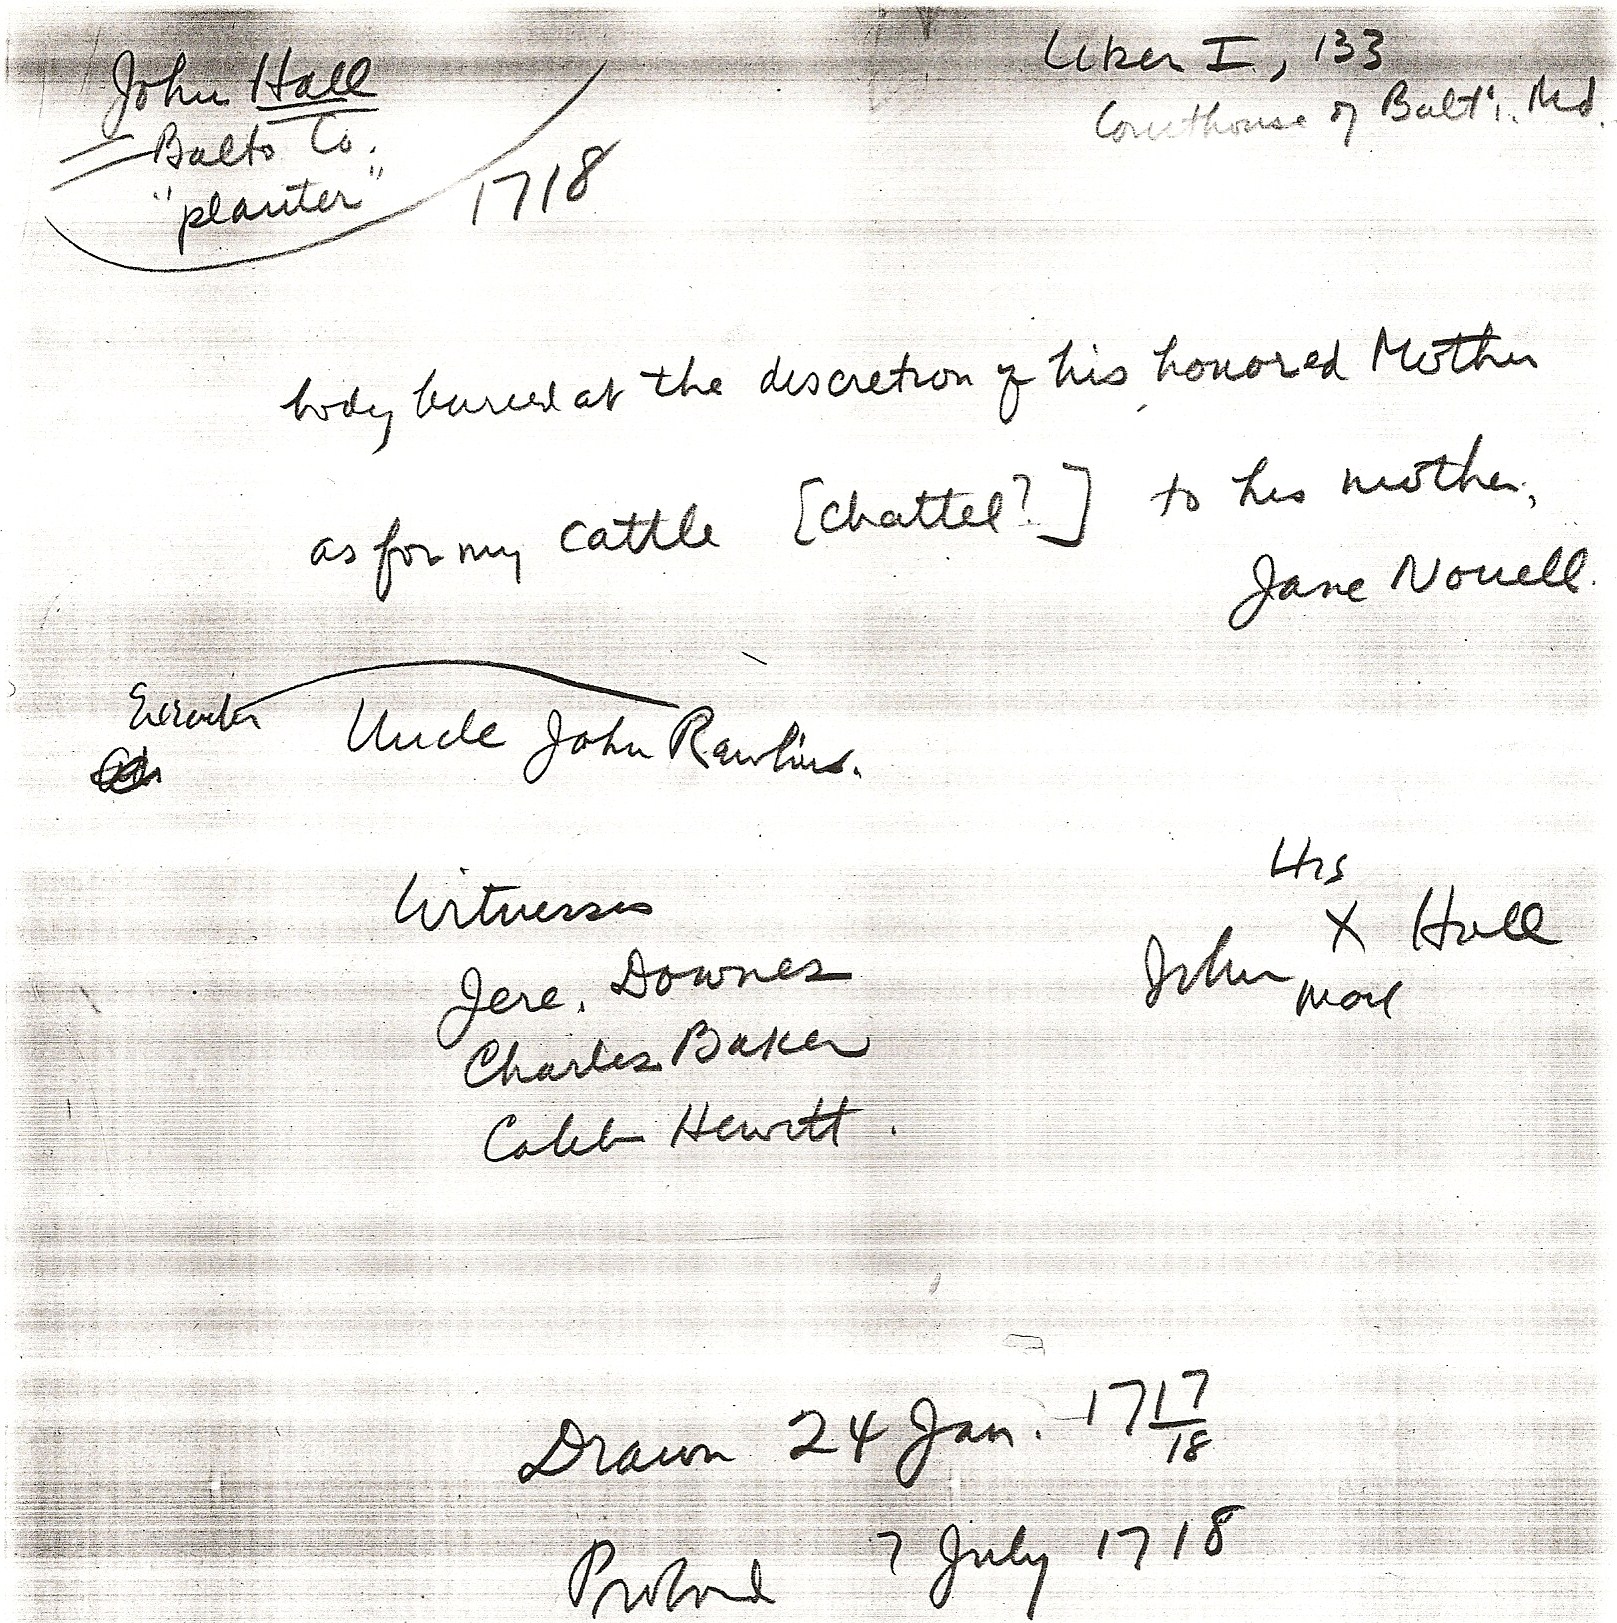 John Hall
Balto Co.
"planter"
1718
Liber I, 133
Courthouse of Balto. Md.
body buried at the discretion of his honored Mother
as for my cattle [chattel?] to his mother,
Jane Novell.
Executor Uncle John Rawlins.
Witnesses
Jere. Downes
Charles Baker
Caleb Hewitt.
His
John X Hall
mark
Drawn 24 Jan. 1717/18
Proved 7 July 1718